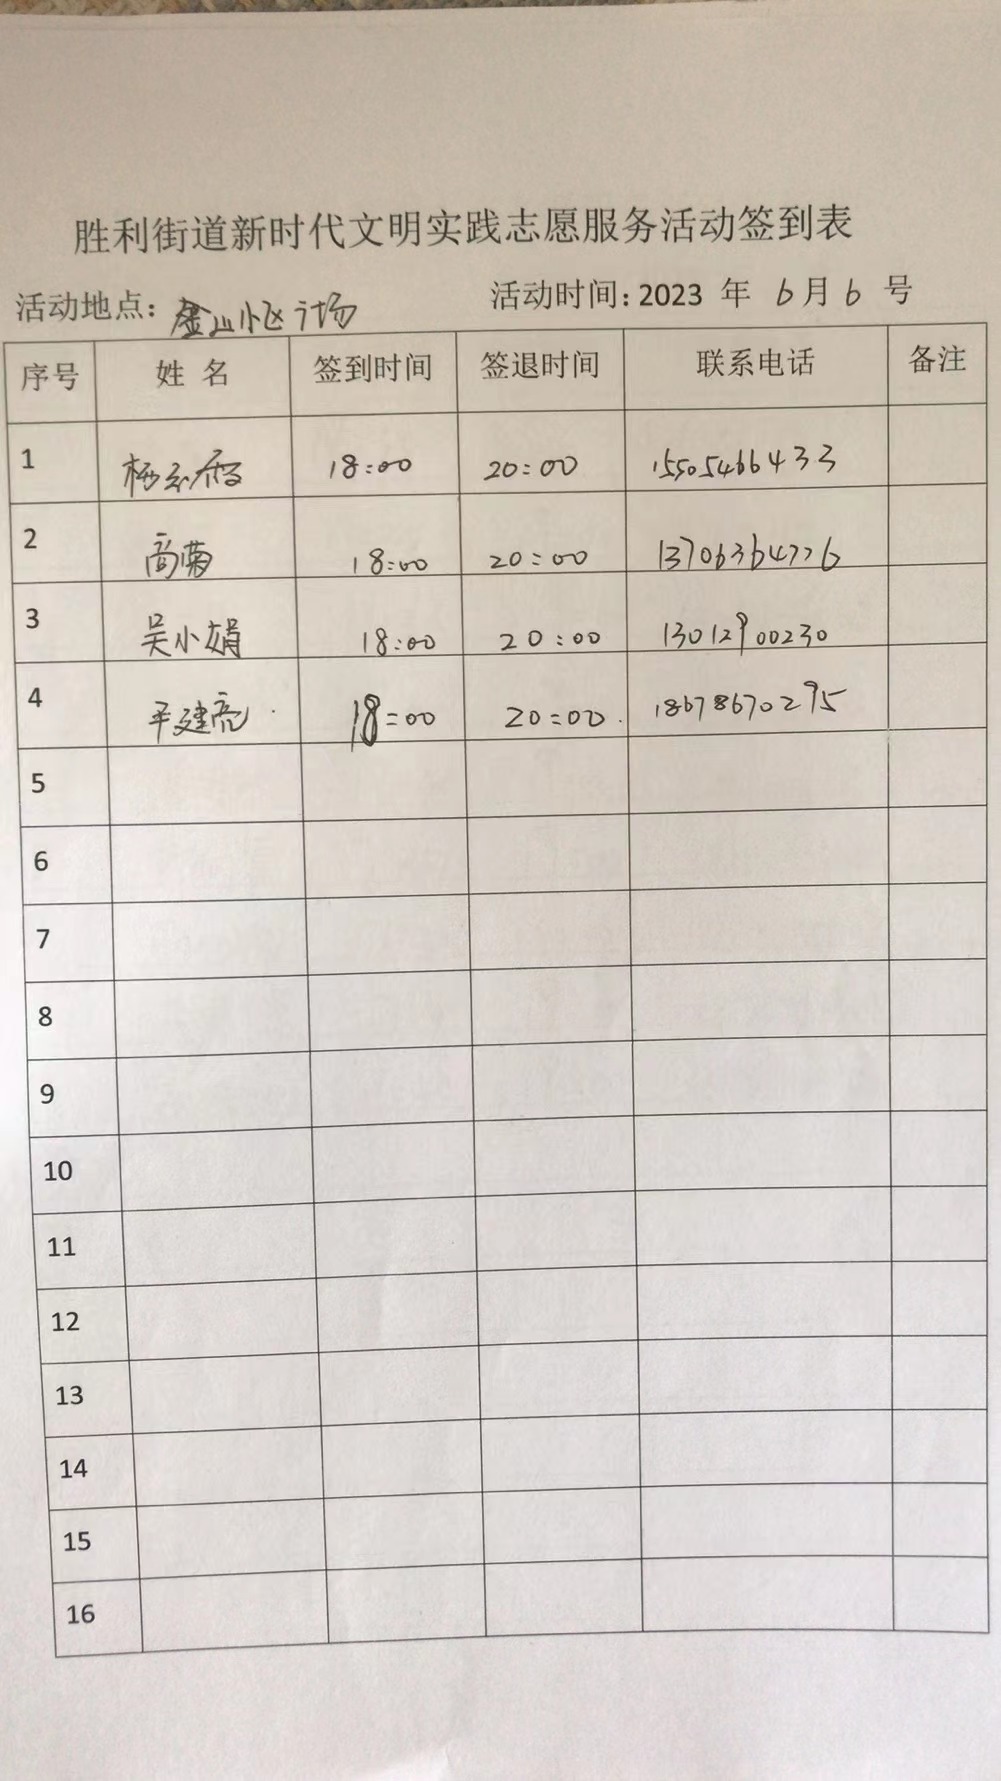 胜利街道新时代文明实践志愿服务活动签到表
活动地点：金山小区广场 活动时间：2023 年 6月6 号
序号 姓 名 签到时间 签退时间 联系电话 备注
1 杨 香 18:00 20:00 15505466433
2 高菊 18:00 20:00 13706364776
3 吴小娟 18:00 20:00 13012900230
4 平建亮 18:00 20:00 18678670295
5
6
7
8
9
10
11
12
13
14
15
16